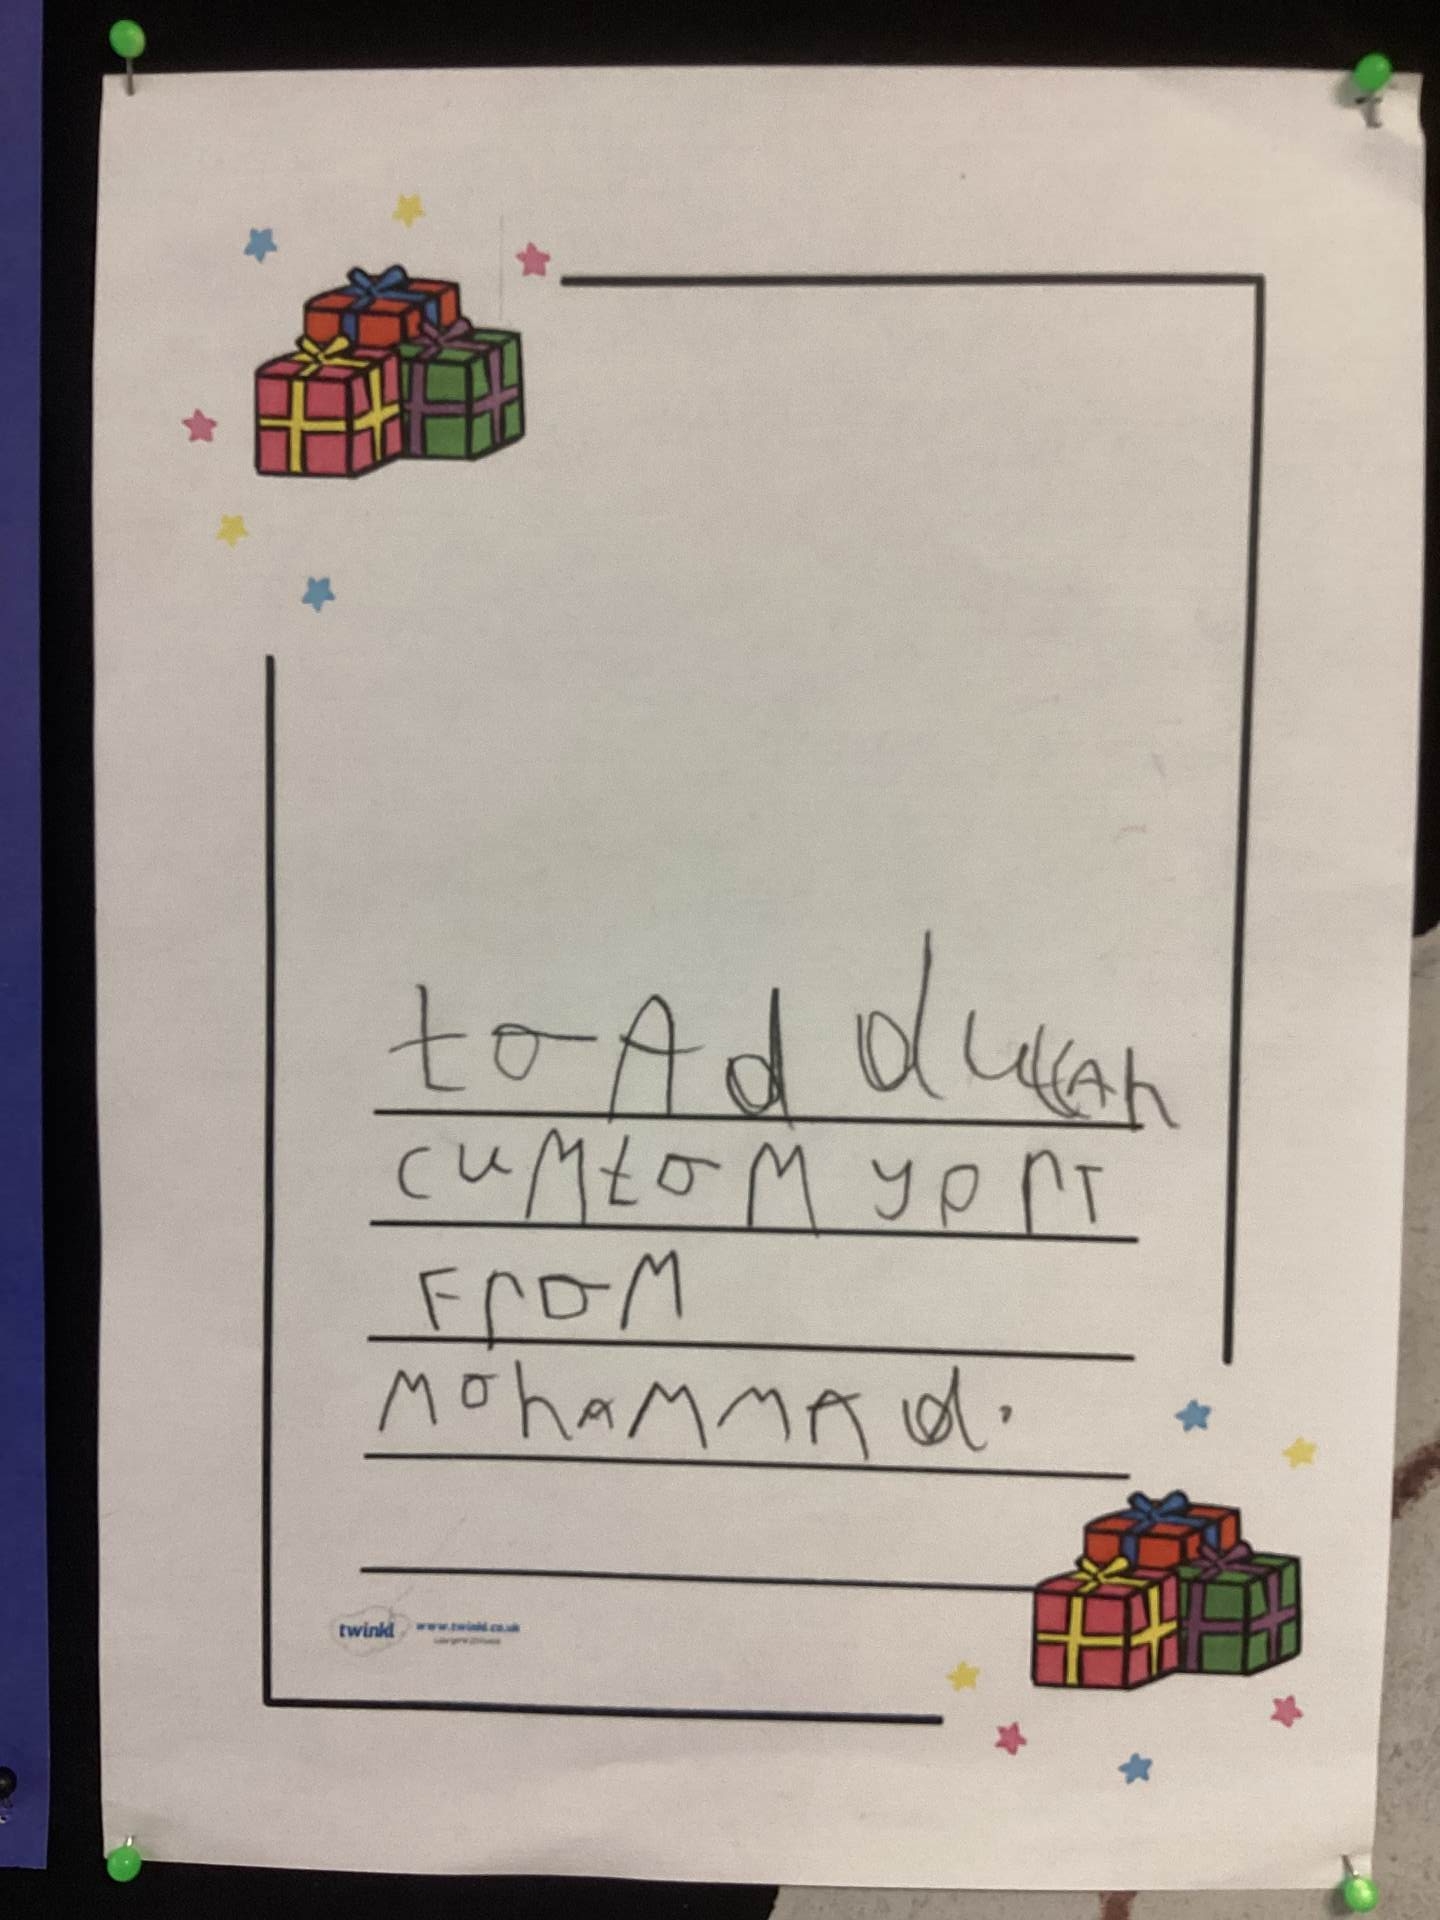 to Ad dullah
cum to M y prt
From
Mohammad.
twinkl www.twinkl.co.uk